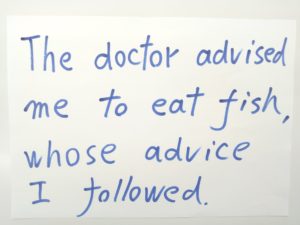 The doctor advised
me to eat fish,
whose advice
I followed.